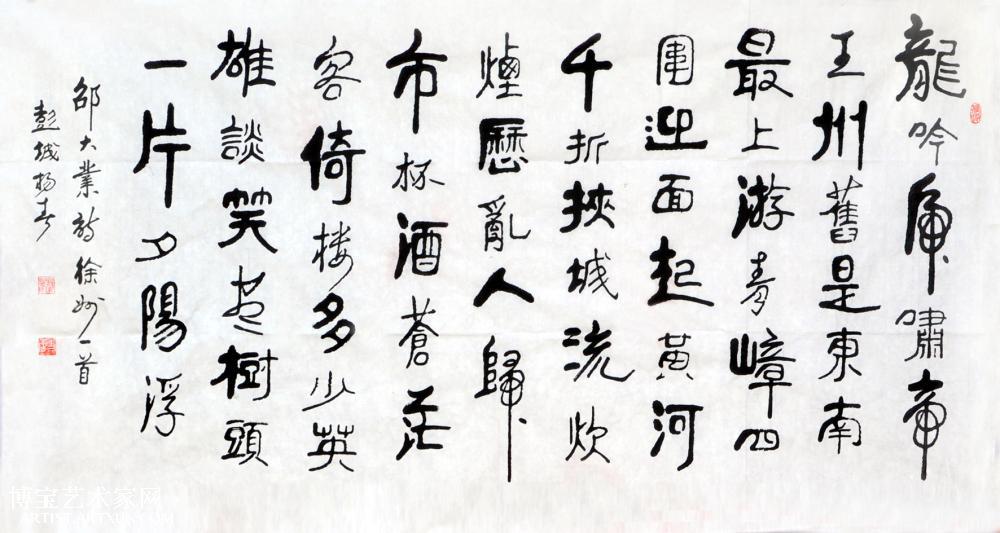 龍吟虎嘯帝
王州舊是東南
最上游青嶂四
圍迎面起黃河
千折挾城流炊
煙歷亂人歸
市杯酒蒼茫
客倚樓多少英
雄談笑盡樹頭
一片夕陽浮
邵大業詩徐州一首
彭城楊春
博宝艺术家网
ARTIST.ARTXUN.COM